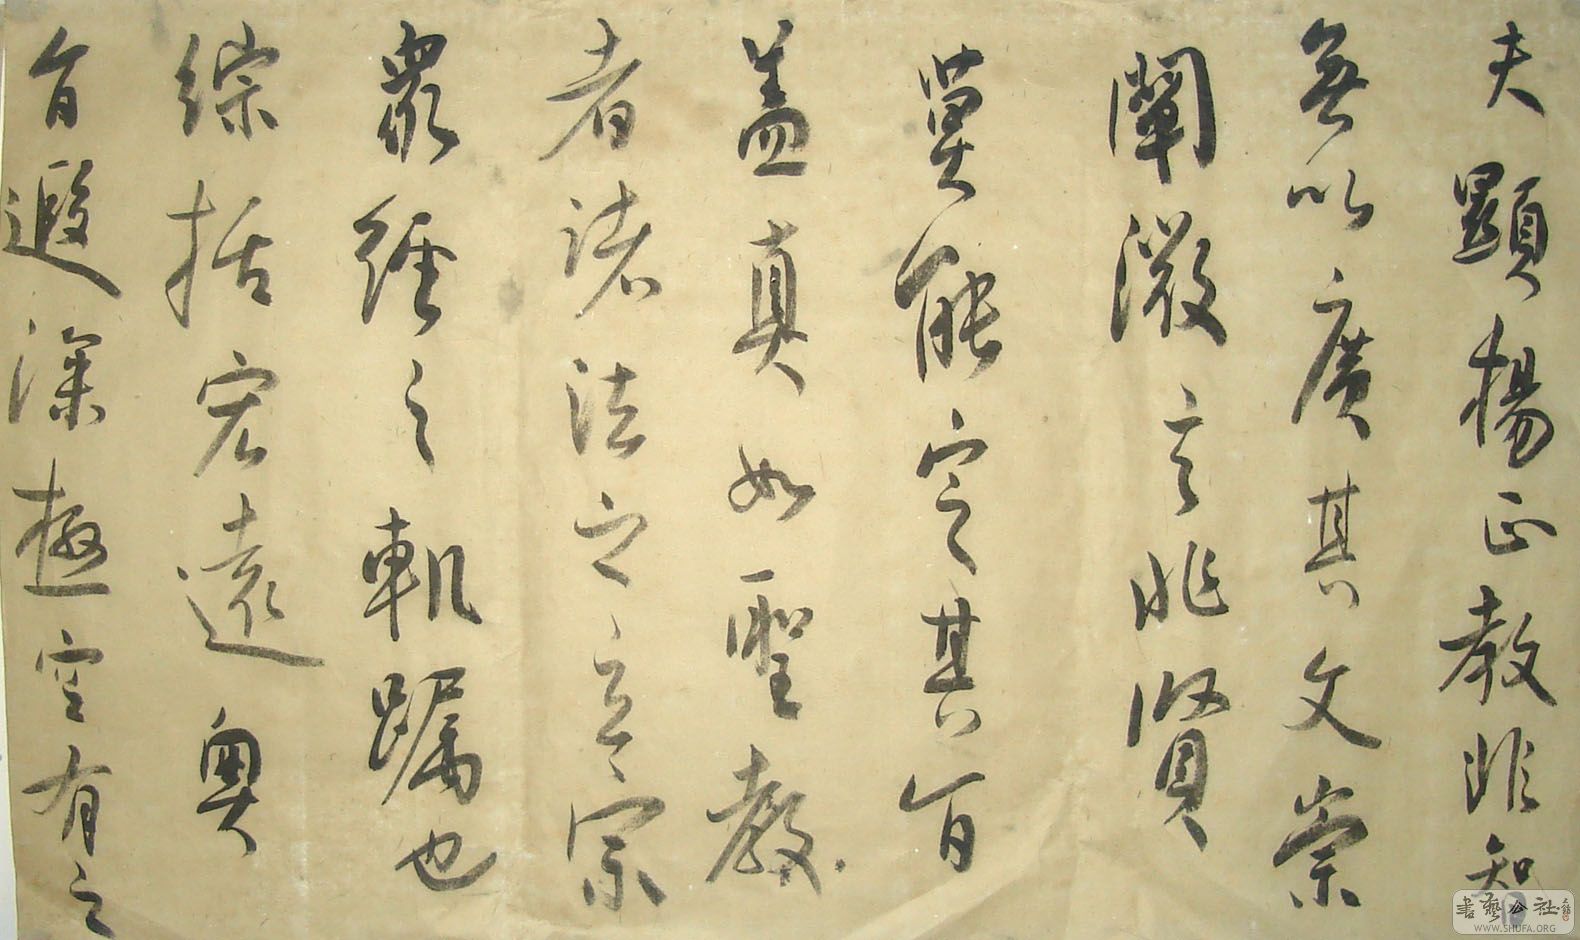 夫顯揚正教非智
無以廣其文崇
闡微言非賢
莫能定其旨
蓋真如聖教
者諸法之玄宗
眾經之軌躅也
綜括宏遠奧
旨遐深極空有之
書藝公社
WWW.SHUFA.ORG